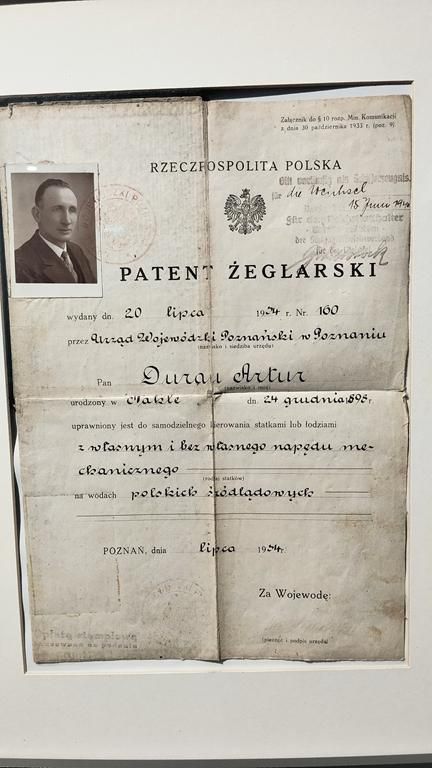 Załącznik do § 10 rozp. Min. Komunikacji
z dnia 30 października 1933 r. (poz. 9)
RZECZPOSPOLITA POLSKA
Gilt vorläufig als Schifferzeugnis
für die Weichsel
15. Juni 194
Für den Reichsstatthalter
für die
PATENT ŻEGLARSKI
wydany dn. 20 lipca 1934 r. Nr. 160
przez Urząd Wojewódzki Poznański w Poznaniu
(nazwisko i siedziba urzędu)
Pan Durau Artur
(nazwisko i imię)
urodzony w Nakle dn. 24 grudnia 1898 r.
uprawniony jest do samodzielnego kierowania statkami lub łodziami
z własnym i bez własnego napędu me-
chanicznego
(rodzaj statków)
na wodach polskich śródlądowych
POZNAŃ, dnia lipca 1934 r.
Za Wojewodę:
(pieczęć i podpis urzędu)